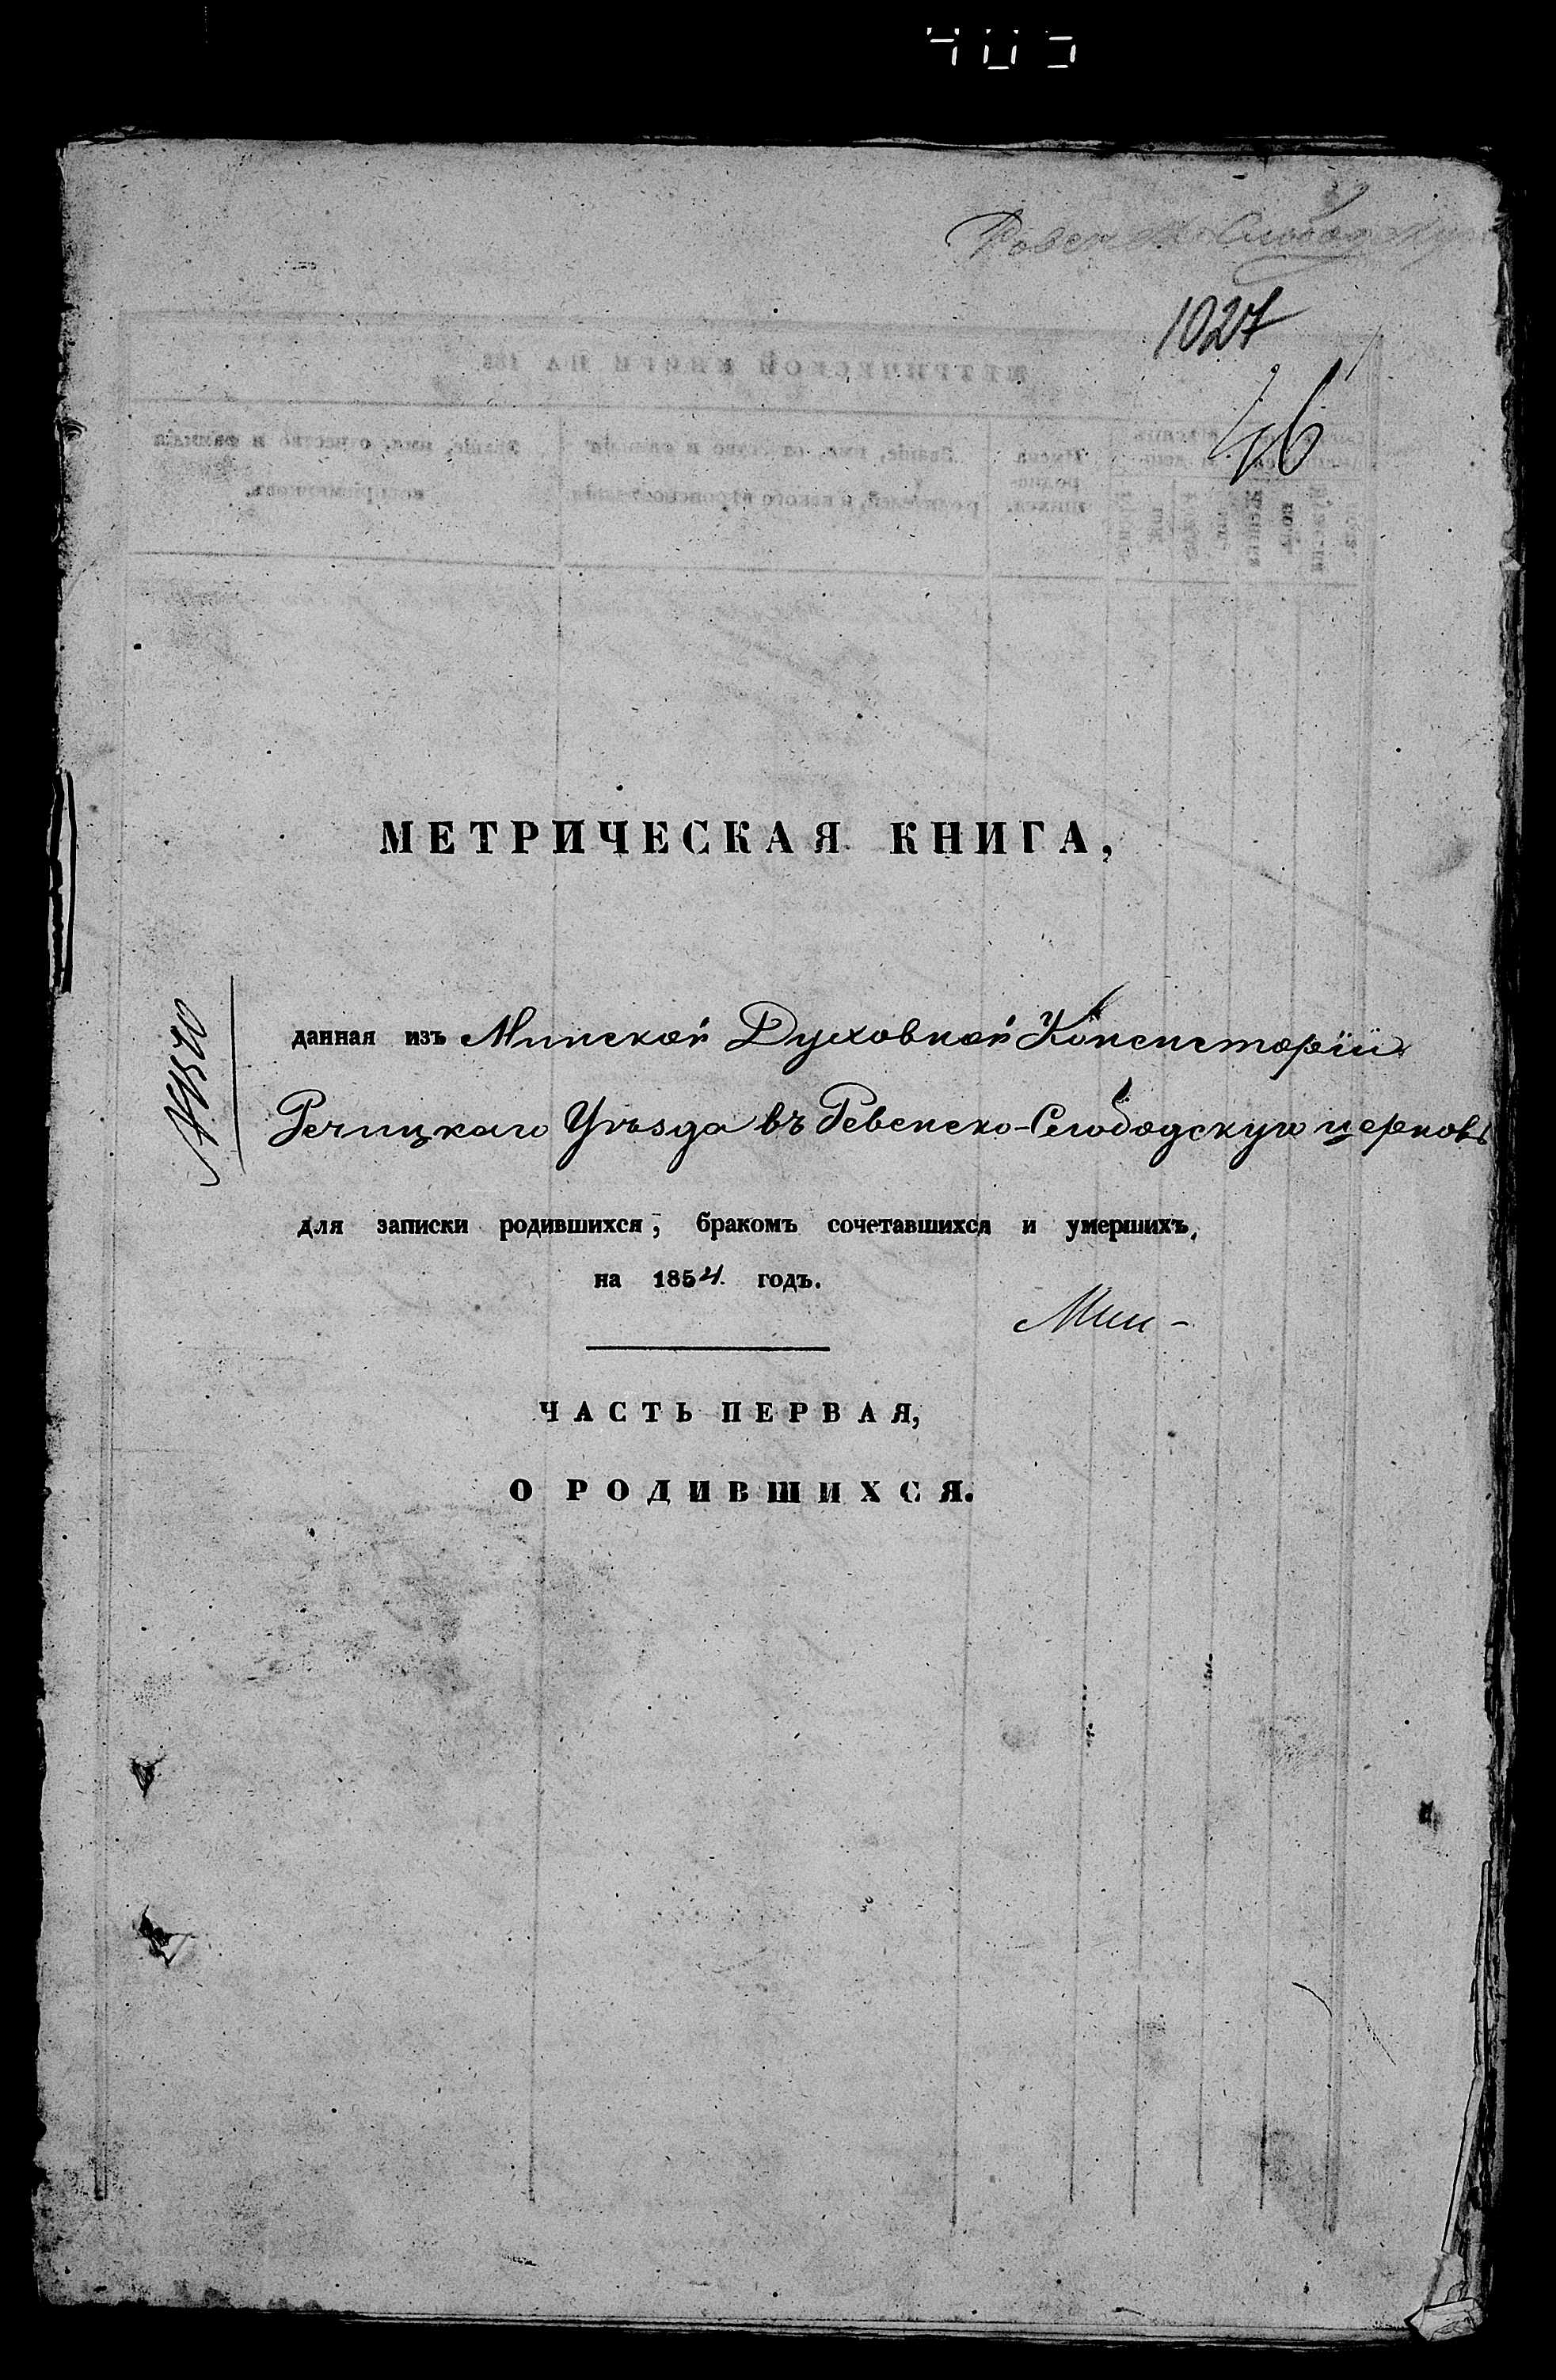 1027
46
МЕТРИЧЕСКАЯ КНИГА,
данная изъ Минской Духовной Консисторіи
Речицкаго Уѣзда въ Ревенско-Слободскую церковь
для записки родившихся, бракомъ сочетавшихся и умершихъ,
на 1854 годъ.
Мин-
ЧАСТЬ ПЕРВАЯ,
О РОДИВШИХСЯ.